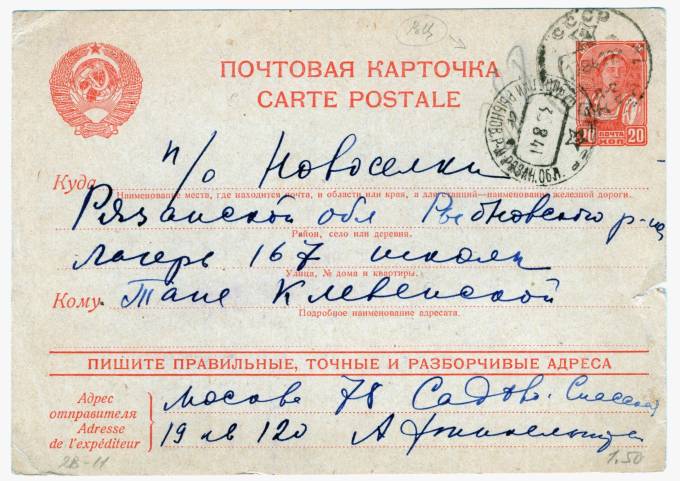 СССР
ПОЧТОВАЯ КАРТОЧКА
CARTE POSTALE
ПОЧТА
20 КОП 20
5.8.41
РЯЗАН. ОБЛ.
Куда п/о Новоселки
Наименование места, где находится почта, и области или края, а для станций—наименование железной дороги.
Рязанской обл Рыбновского р-на
Район, село или деревня.
лагерь 167 школы
Улица, № дома и квартиры.
Кому Тане Клевенской
Подробное наименование адресата.
ПИШИТЕ ПРАВИЛЬНЫЕ, ТОЧНЫЕ И РАЗБОРЧИВЫЕ АДРЕСА
Адрес отправителя
Adresse de l'expéditeur
Москва 78 Садово. Спасская
19 кв 120 А
2В-11
1.50